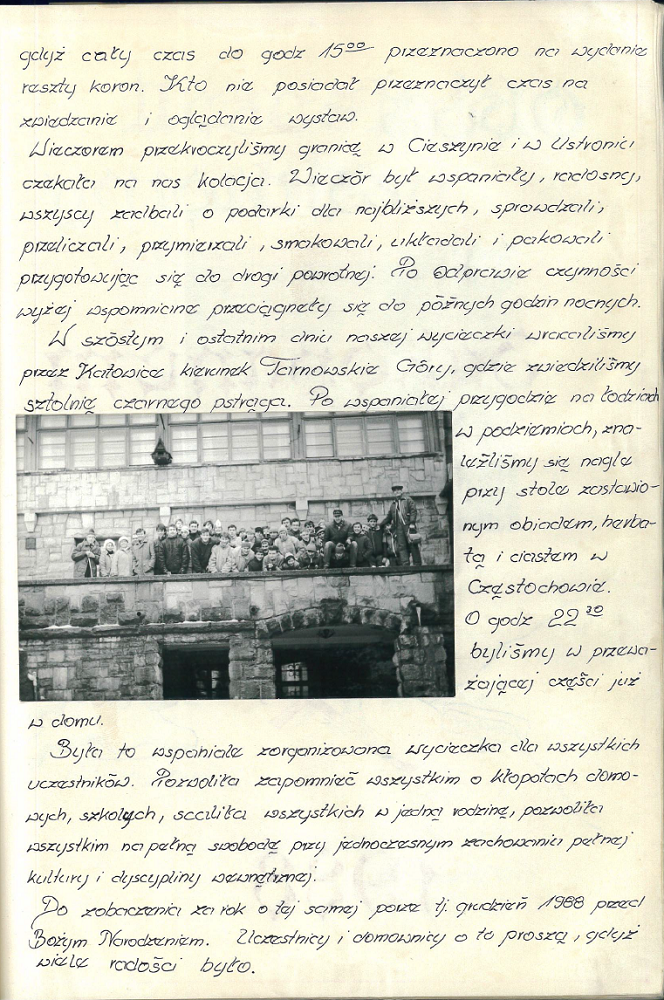 gdyż cały czas do godz 15⁰⁰ przeznaczono na wydanie
reszty koron. Kto nie posiadał przeznaczył czas na
zwiedzanie i oglądanie wystaw.
Wieczorem przekroczyliśmy granicę w Cieszynie i w Ustroniu
czekała na nas kolacja. Wieczór był wspaniały, radosny,
wszyscy zadbali o podarki dla najbliższych, sprawdzali,
przeliczali, przymierzali, smakowali, układali i pakowali
przygotowując się do drogi powrotnej. Po odprawie czynności
wyżej wspomniane przeciągnęły się do późnych godzin nocnych.
W szóstym i ostatnim dniu naszej wycieczki wracaliśmy
przez Katowice kierunek Tarnowskie Góry, gdzie zwiedziliśmy
sztolnię czarnego pstrąga. Po wspaniałej przygodzie na łodziach
w podziemiach, zna-
leźliśmy się nagle
przy stole zastawio-
nym obiadem, herba-
tą i ciastem w
Częstochowie.
O godz 22³⁰
byliśmy w przewa-
żającej części już
w domu.
Była to wspaniale zorganizowana wycieczka dla wszystkich
uczestników. Pozwoliła zapomnieć wszystkim o kłopotach domo-
wych, szkolnych, scaliła wszystkich w jedną rodzinę, pozwoliła
wszystkim na pełną swobodę przy jednoczesnym zachowaniu pełnej
kultury i dyscypliny wewnętrznej.
Do zobaczenia za rok o tej samej porze tj. grudzień 1988 przed
Bożym Narodzeniem. Uczestnicy i domownicy o to proszą, gdyż
wiele radości było.